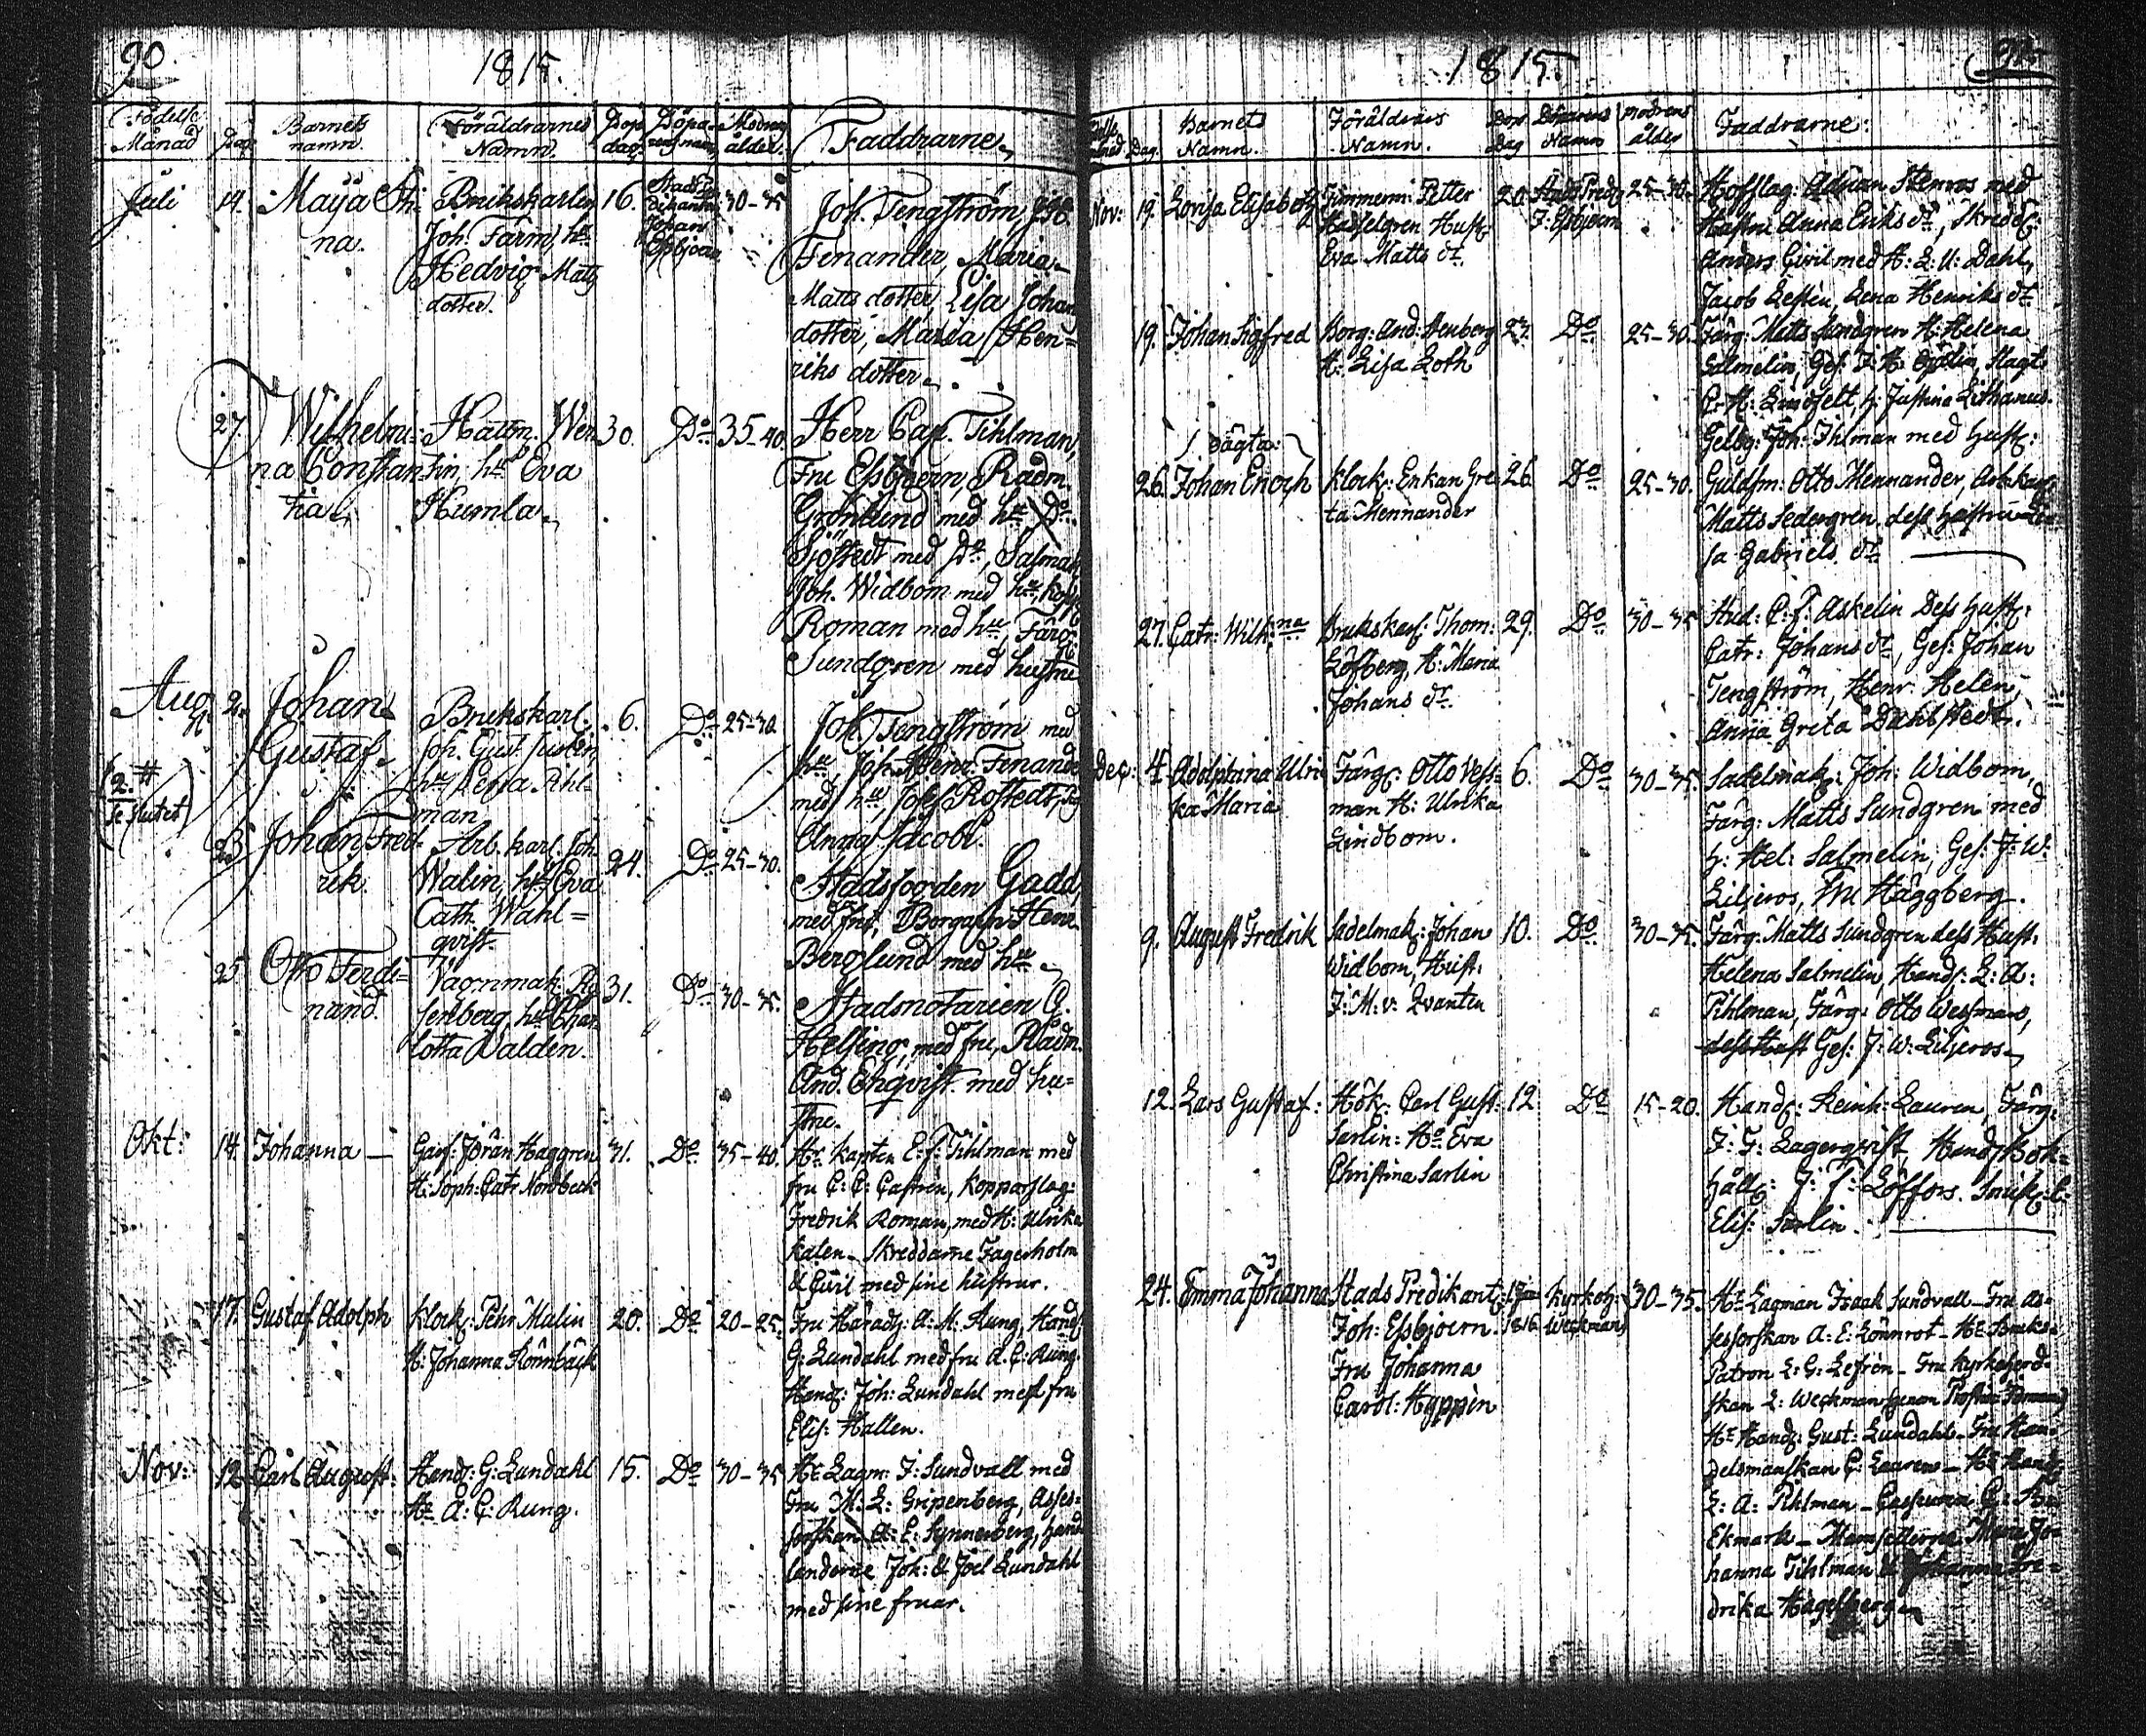 90.
1815.
Födelse Månad
Dag
Barnets namn.
Föräldrarnes Namn.
Döpe dag
Döpa- rens namn
Modrens ålder.
Faddrarne
Juli
14.
Maija Sti-
na.
Brukskarlen
Joh. Farm, hu
Hedvig Matts
dotter.
16.
Stads
Johan
Essbjoern
30-35
Joh. Tengström,
Fenander, Maria
Matts dotter, Lisa Johans
dotter, Maria Hen=
riks dotter.
27.
Wilhelmi-
na Constan
tia
Hattm. Wer
tin, hu Eva
Humla
30.
Do
35-40.
Herr Cap. Tihlman,
Fru Essbjoern, Rådm.
Grönlund med hu Do
Sjöstedt med Do, Salmak
Joh. Widbom med hu, Kopp
Roman med hu, Färg
Sundgren med hustru
Aug.
2.
Johan
Gustaf.
Brukskarl.
Joh. Gust.
hu Ahl-
man
6.
Do
25-30.
Joh. Tengström med
hu, Joh. Henr. Fenander
med hu, Josef Rostedt,
Anna Jacobs.
23.
Johan Fred-
rik.
Arb. karl. Joh.
Walin, hu Eva
Cath. Wahl=
qvist.
24.
Do
25-30.
Stadsfogden Gadd,
med fru, Borgaren Henr.
Berglund med hu
25.
Otto Ferdi-
nand.
Vagnmak.
senberg, hu Char
lotta Walden.
31.
Do
30-35.
Stadsnotarien C.
Helsing, med fru, Rådm.
And. Ehqvist med hu=
stru.
Okt:
14.
Johanna —
Garf: Jöran Haggren
H: Soph: Catr Nordbeck
31.
Do
35-40.
Hr Kapten E: F: Tihlman med
fru C: C: Castren, Kopparslag:
Fredrik Roman, med H: Ulrika
Kalen - Skreddarne Fagerholm
& Civil med sine hustrur.
17.
Gustaf Adolph
Klock: Pehr Malin
H: Johanna Rönnbäck
20.
Do
20-25.
Fru Häradz: A: M: Rung, Handl
G: Lundahl med fru A: C: Rung.
Handl: Joh: Lundahl med fru
Elis: Hallen.
Nov:
12.
Carl August.
Handl: G: Lundahl
Hu A: C: Rung.
15.
Do
30-35
Hr Lagm: I: Sundvall med
Fru M: L: Gripenberg, Asses=
sorskan A: E: Synnerberg, Hand
landerne Joh: & Joel Lundahl
med sine fruar.
1815.
91.
Dag.
Barnets Namn.
Föräldrars Namn.
Dop Dag
Döparens Namn
Modrens ålder
Faddrarne:
Nov:
19.
Lovisa Elisabeth
Timmerm: Petter
Hasselgren Hust
Eva Matts dr.
20.
Stads Pred:
J: Essbjoern
25-30.
Hofslag: Adrian Stenros med
Hustru Anna Eriks dr, Skredd
Anders Civil med H: L: U: Dahl,
Jacob Lestén, Lena Henriks dr
19.
Johan Sigfred
Borg: And: Stenberg
H: Lisa Loth
27.
Do
25-30.
Färg: Matts Sundgren H: Helena
Salmelin, Ges: J: H: Ståhl, Magt:
C: H: Lindfelt, h: Justina Lithanus.
Gelbg: Joh: Ihlman med Hust:
26.
Johan Enoch
Klock: Enkan Gre
ta Mennander
26.
Do
25-30.
Guldsm: Otto Mennander, Arb.karl
Matts Sedergren, dess Hustru Li
sa Gabriels. dr.
27.
Catr: Wilh:na
Brukskarl: Thom:
Löfberg, H: Maria
Johans dr.
29.
Do
30-35
Hud: C: F: Askelin Dess Hust:
Catr: Johans dr, Ges: Johan
Tengström, Henr Helen,
Anna Greta Dahlstedt.
Dec:
4.
Adolphina Ulri
ka Maria
Färg: Otto Vess-
man H: Ulrika
Lindbom.
6.
Do
30-35.
Sadelmak: Joh: Widbom,
Färg: Matts Sundgren med
h: Hel: Salmelin, Ges: J: W:
Liljeros, Fru Häggberg.
9.
August Fredrik
Sadelmak: Johan
Widbom, Hust:
J: M: v: Qvanten
10.
Do
30-35.
Färg: Matts Sundgren dess Hust:
Helena Salmelin, Handl: L: A:
Pihlman, Färg: Otto Wessman,
dess Hust Ges: J: W: Liljeros
12.
Lars Gustaf:
Hök: Carl Gust:
Sarlin: Ho Eva
Christina Sarlin
12
Do
15-20.
Handl: Reinh: Lauren, Färg:
J: G: Lagerqvist, Hands Bok=
håll: J: F: Löffors.
Elis: Sarlin.
24.
Emma Johanna
Stads Predikant:
Joh: Essbjoern.
Fru Johanna
Carol: Hyppén
1816
Kyrkoh:
Weckman
30-35.
Hr Lagman Isaak Sundvall - Fru As-
sessorskan A: E: Lönnrot - Hr Bruks-
Patron L: G: Lefrén - Fru Kyrkoherd-
skan L: Weckman
Hr Handl: Gust: Lundahl - Fru Han-
delsmanskan C: Lauren - Hr Handl:
L: A: Pihlman -
Ekmark - Mamsellerna Maria Jo-
hanna Tihlman & Johanna Fre-
drika Hägelberg